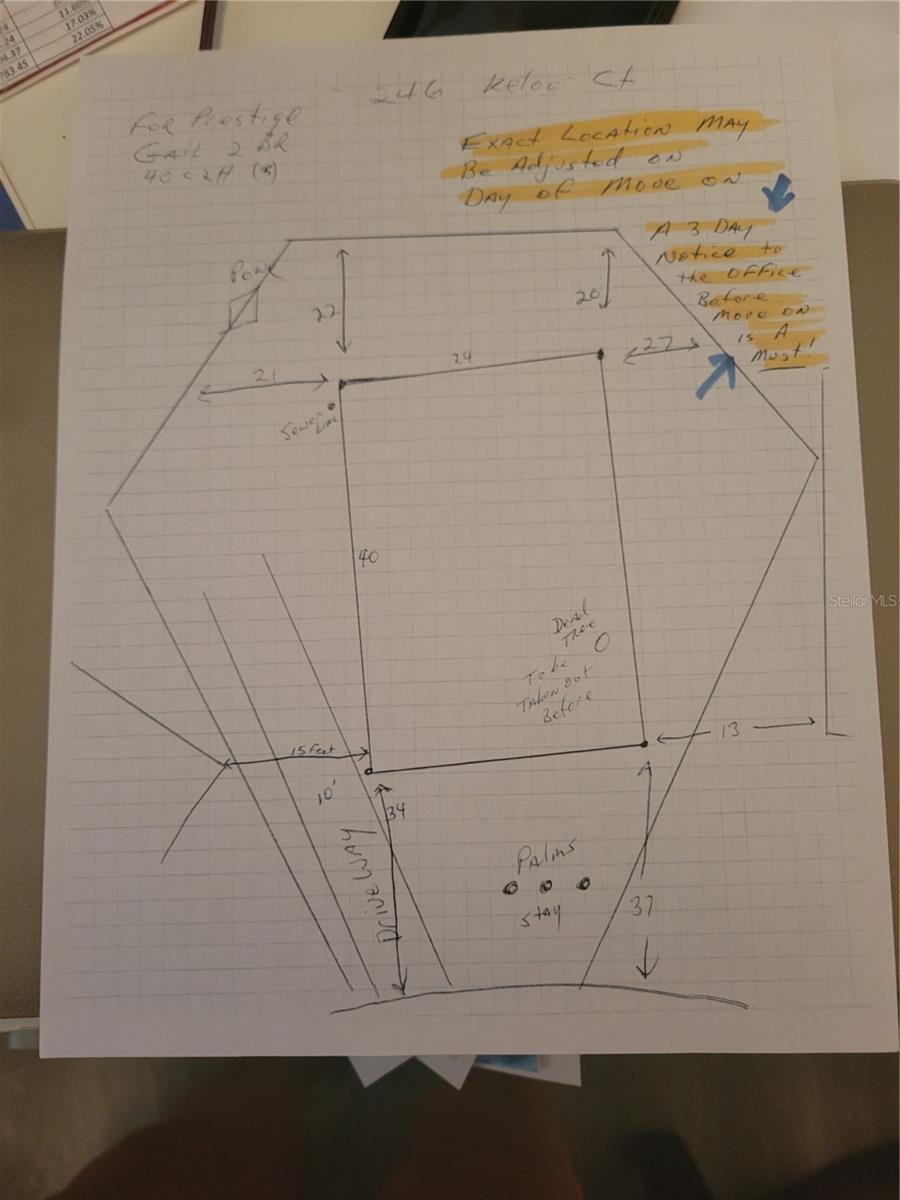 11.60%
17.03%
22.05%
04.37
783.45
246 Kelou Ct
For Prestige
Gail 2 BR
Exact Location May
Be Adjusted on
Day of Move on
A 3 Day
Notice to
the Office
Before
Move on
is A
Must!
22
20
27
24
21
Sewer
Line
40
Dead
Tree
To be
Taken out
Before
StellarMLS
13
15 Feet
10'
34
Driveway
Palms
Stay
37